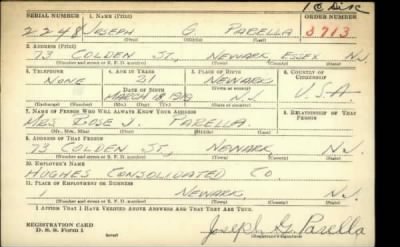 1 C Disc
SERIAL NUMBER 1. NAME (Print) ORDER NUMBER
2248 JOSEPH G. PARELLA 3713
(First) (Middle) (Last)
2. ADDRESS (Print)
73 COLDEN ST., NEWARK ESSEX N.J.
(Number and street or R. F. D. number) (Town) (County) (State)
3. TELEPHONE 4. AGE IN YEARS 5. PLACE OF BIRTH 6. COUNTRY OF CITIZENSHIP
NONE 21 NEWARK
DATE OF BIRTH U.S.A.
MARCH 18 1919 N.J.
(Exchange) (Number) (Mo.) (Day) (Yr.) (State or country)
7. NAME OF PERSON WHO WILL ALWAYS KNOW YOUR ADDRESS 8. RELATIONSHIP OF THAT PERSON
MRS. ROSE PARELLA
(Mr., Mrs., Miss) (First) (Middle) (Last)
9. ADDRESS OF THAT PERSON
73 COLDEN ST., NEWARK N.J.
(Number and street or R. F. D. number) (Town) (County) (State)
10. EMPLOYER'S NAME
HUGHES CONSOLIDATED CO.
11. PLACE OF EMPLOYMENT OR BUSINESS
NEWARK, N.J.
(Number and street or R. F. D. number) (Town) (County) (State)
I AFFIRM THAT I HAVE VERIFIED ABOVE ANSWERS AND THAT THEY ARE TRUE.
REGISTRATION CARD
D. S. S. Form 1 (over) Joseph G. Parella
(Registrant's signature)